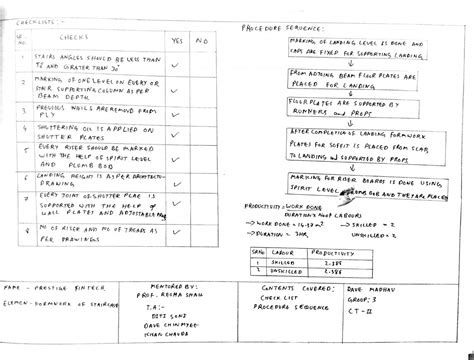 CHECKLISTS:-
SR. NO. CHECKS YES NO
1 STAIRS ANGLES SHOULD BE LESS THAN
AND GREATER THAN 30°
2 MARKING OF ONE LEVEL ON EVERY OR
SUPPORTING COLUMN AS PER
BEAM DEPTH
3 PREVIOUS NAILS ARE REMOVED FROM
PLY
4 SHUTTERING OIL IS APPLIED ON
SHUTTER PLATES
5 EVERY RISER SHOULD BE MARKED
WITH THE HELP OF SPIRIT LEVEL
AND PLUMB BOB
6 LANDING HEIGHT IS AS PER ARCHITECTURE
DRAWING
7 EVERY JOINT OF SHUTTER PLATE IS
SUPPORTED WITH THE HELP OF
WALL PLATES AND ADJUSTABLE
8 NO OF RISER AND NO OF TREADS AS
PER DRAWINGS
PROCEDURE SEQUENCE:
MARKING OF LANDING LEVEL IS DONE AND
CAPS ARE FIXED FOR SUPPORTING BEAMS
FROM BEAM FLOOR PLATES ARE
PLACED FOR LANDING
FLOOR PLATES ARE SUPPORTED BY
RUNNERS AND PROPS
AFTER COMPLETION OF LANDING FORMWORK
PLATES FOR SOFFIT IS PLACED FROM SLAB
TO LANDING & SUPPORTED BY PROPS
MARKING FOR RISER BOARDS IS DONE USING
SPIRIT LEVEL BOB AND THEY ARE PLACED
PRODUCTIVITY = WORK DONE
DURATION LABOURS
→ WORK DONE = → SKILLED = 2
→ DURATION = 3HR UNSKILLED = 2
SRNO LABOUR PRODUCTIVITY
1 SKILLED
2 UNSKILLED
NAME - PRESTIGE FINTECH
ELEMENT - FORMWORK OF STAIRCASE
MENTORED BY:
PROF. RESHMA SHAH
T.A:-
DITI SONI
DAVE CHINMYEE
ISHAN CHAVDA
CONTENTS COVERED:
CHECK LIST
PROCEDURE SEQUENCE
DAVE MADHAV
GROUP: 3
CT-II